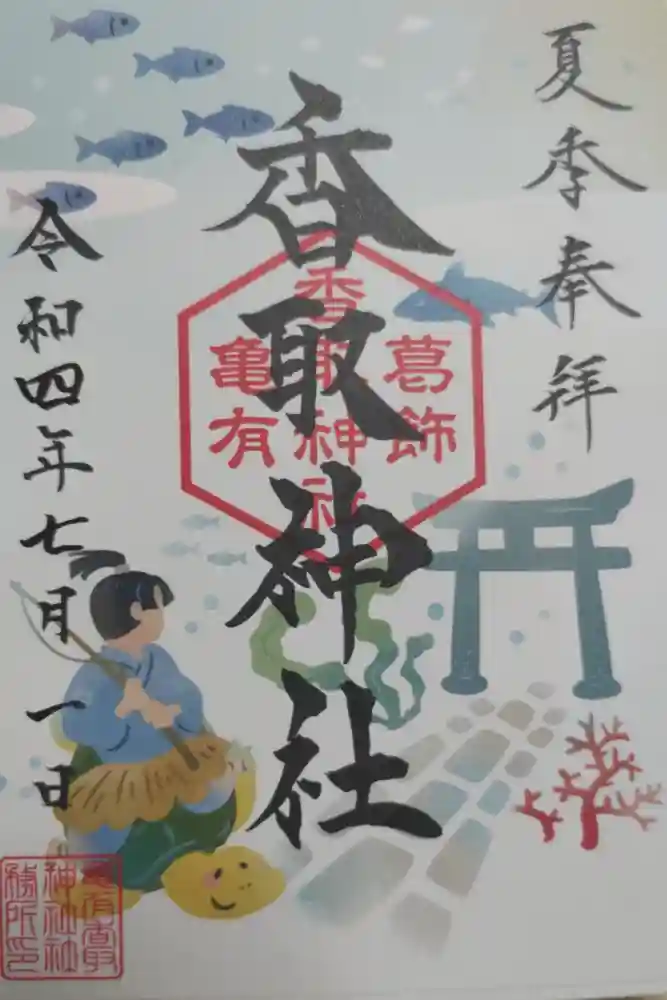 夏季奉拝
香取神社
葛飾
香取神社
亀有
令和四年七月一日